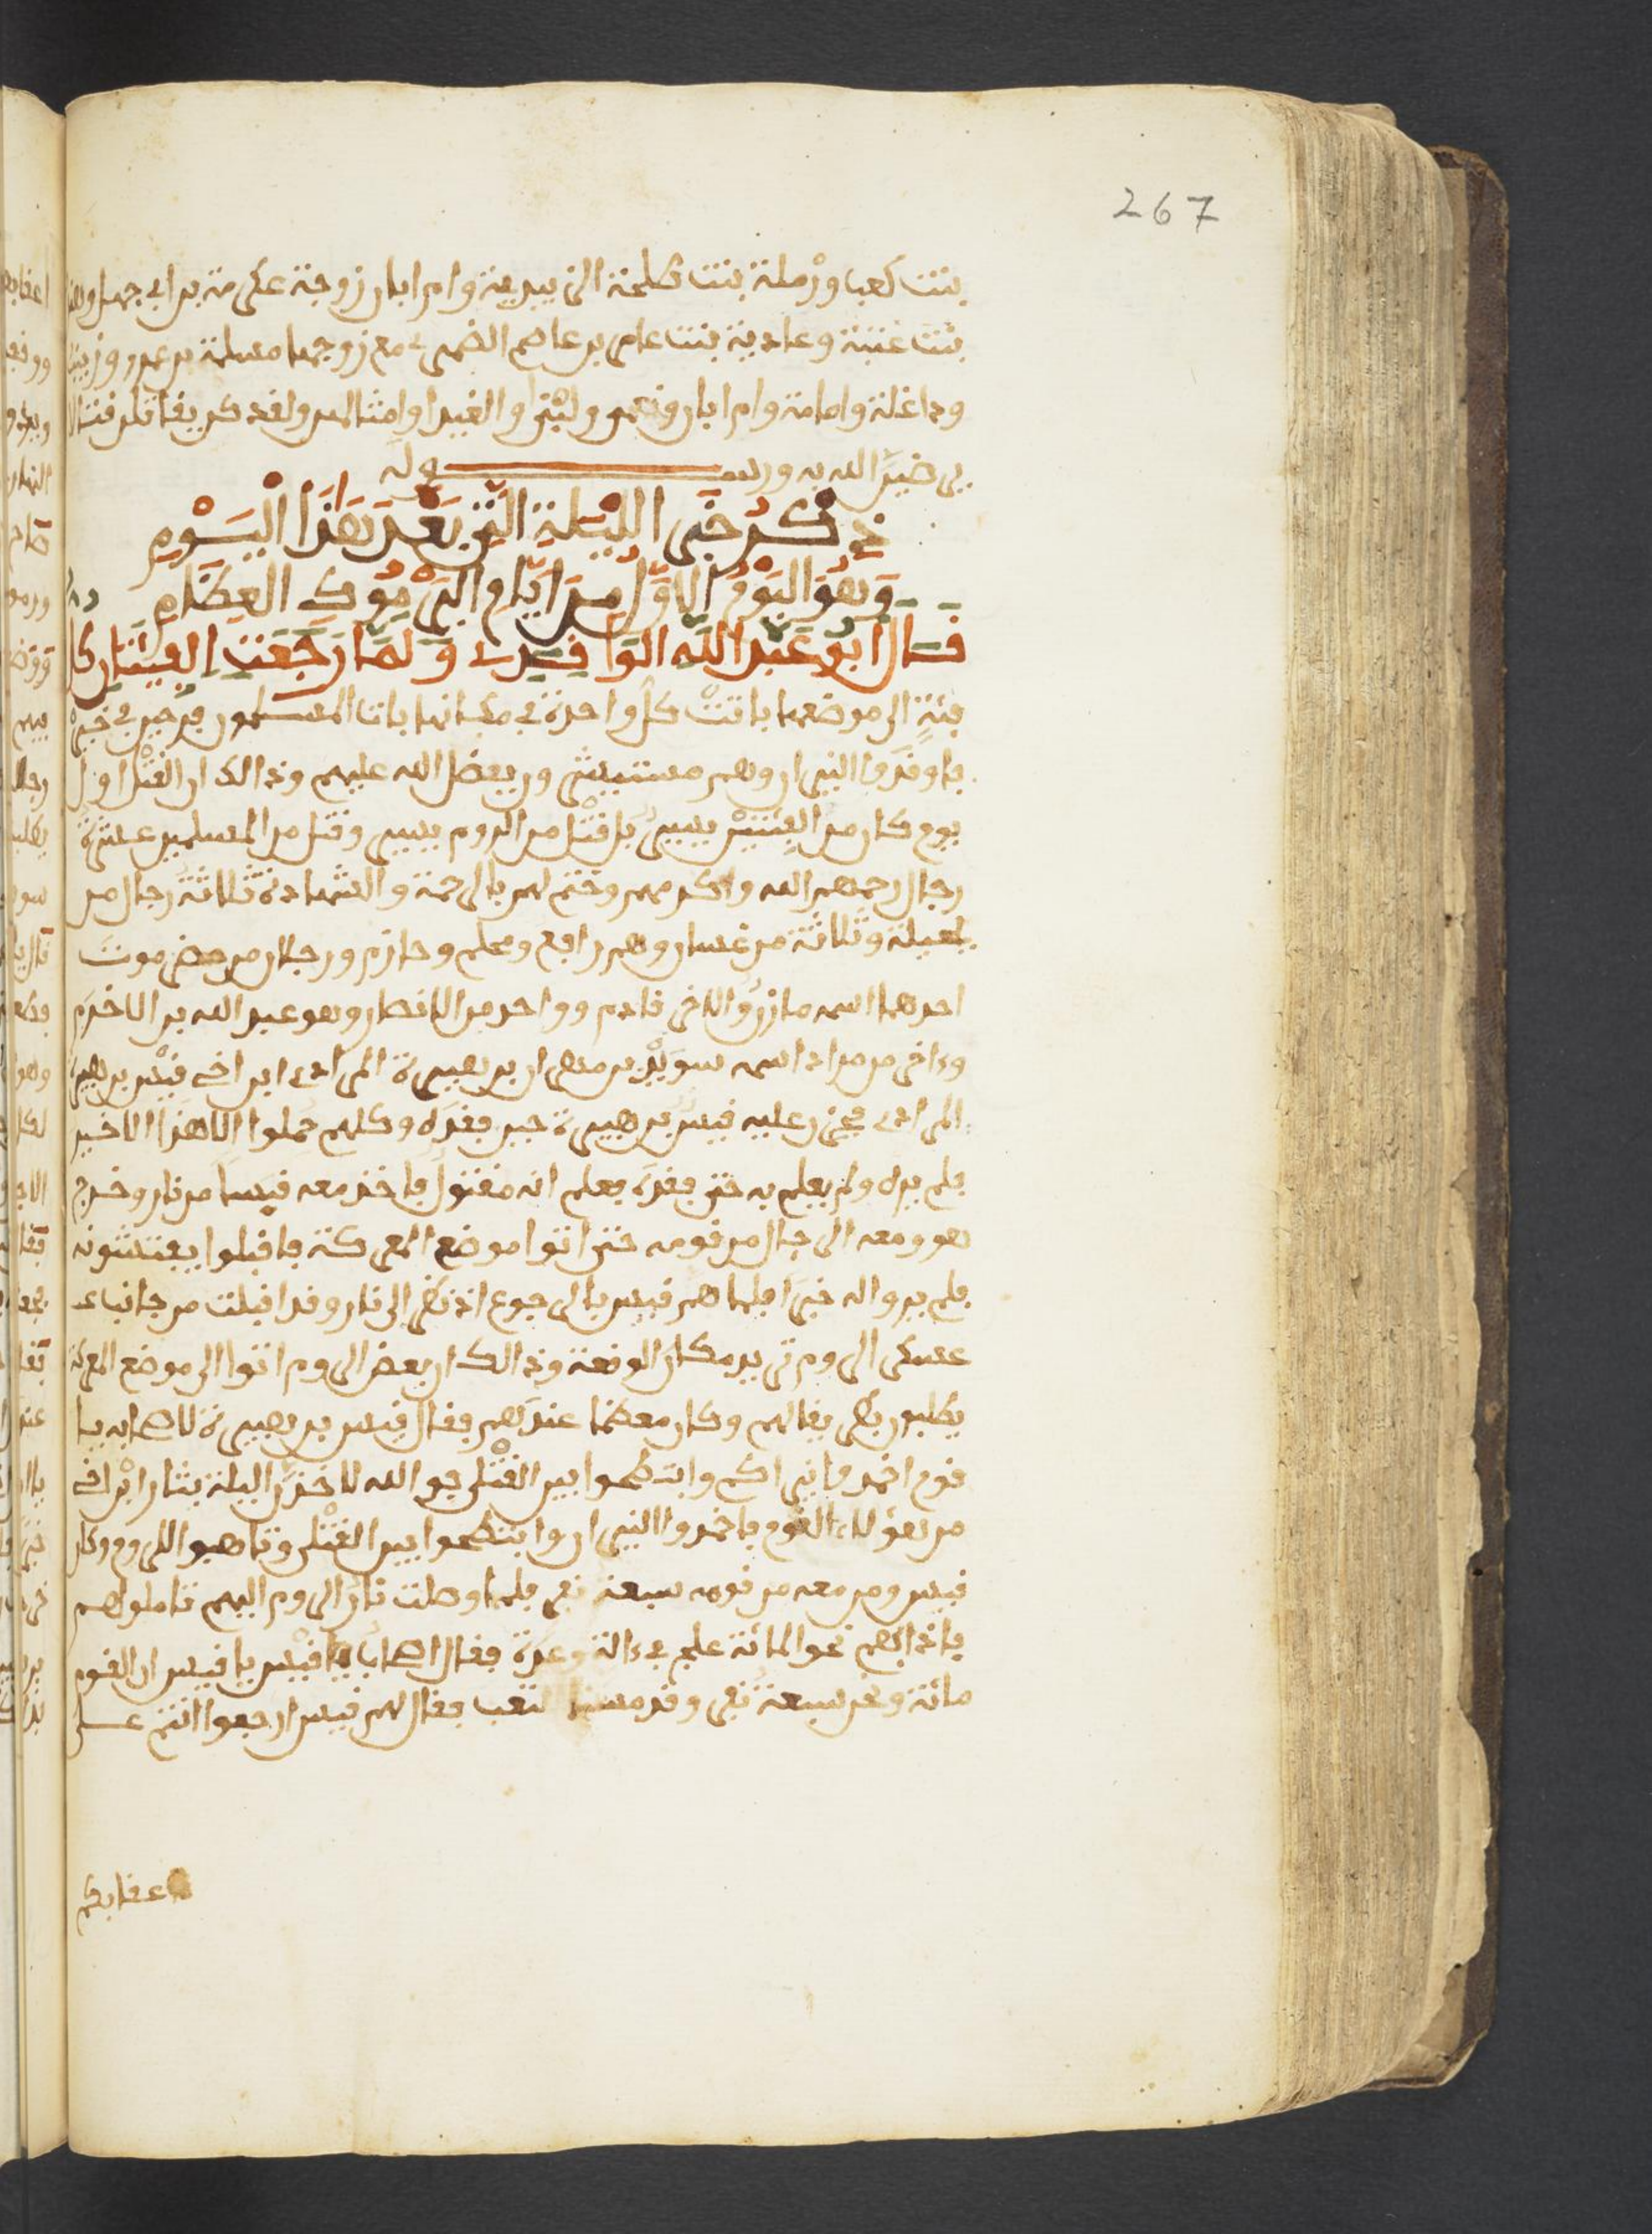 267
بنت كعب ورملة بنت طلحة الزبيرية وام ابان زوجة عكرمة بن ابي جهل وهند
بنت عتبة وعادية بنت عامر بن عاصم الضمري مع زوجها مسلمة بن عمرو وزينب
وداغلة وامامة وام ابان ونعم ولبنى والغيدا وامثالهن ولقد كن يقاتلن قتالا
يرضين الله به ورسوله
ذكر خبر الليلة التي بعد هذا اليوم
وهو اليوم الاول من ايام اليرموك العظام
قال ابو عبد الله الواقدي ولما رجعت الفئتان كل
فئة الى موضعها باتت كل واحدة في مكانها بات المسلمون فرحين في خير
فاوقدوا النيران وهم مستبشرون بفضل الله عليهم وذالك ان القتل اول
يوم كان من الفئتين يسير بل قتل من الروم يسير وقتل من المسلمين عشرة
رجال رحمهم الله واكرمهم وختم لهم بالرحمة والشهادة ثلاثة رجال من
بجيلة وثلاثة من غسان وهم رافع ومحلم وحازم ورجلان من حضرموت
احدهما اسمه مازن والاخر قادم وواحد من الانصار وهو عبد الله بن الاخرم
وءاخر من مراد اسمه سويد بن مهران بن هبيرة المرادي ابن اخي قيس بن هبيرة
المرادي فحزن عليه قيس بن هبيرة حين فقده وكلهم حملوا الا هذا الاخير
فلم يره ولم يعلم به حتى فقده فعلم انه مقتول فاخذ معه قبسا من نار وخرج
هو ومعه الرجال من قومه حتى اتوا موضع المعركة فاقبلوا يفتشونه
فلم يروا له خبرا فلما هم قيس بالرجوع اذ نظر الى نار وقد اقبلت من جانب
عسكر الروم تريد مكان الوقعة وذالك ان بعض الروم اتوا الى موضع المعركة
يطلبون بطريقا لهم وكان معظما عندهم فقال قيس بن هبيرة لاصحابه يا
قوم اخمدوا نيرانكم وانبطحوا بين القتلى فو الله لاخذن الليلة بثار ابن اخي
من هؤلاء القوم فاخمدوا النيران وانبطحوا بين القتلى وتاهبوا للروم وكان
قيس ومن معه من قومه سبعة نفر فلما وصلت نار الروم اليهم تاملوهم
فاذا هم نحو المائة علج في ءالة وعدة فقال اصحاب قيس يا قيس ان القوم
مائة ونحن سبعة نفر وقد مسنا التعب فقال لهم قيس ارجعوا انتم على
اعقابكم